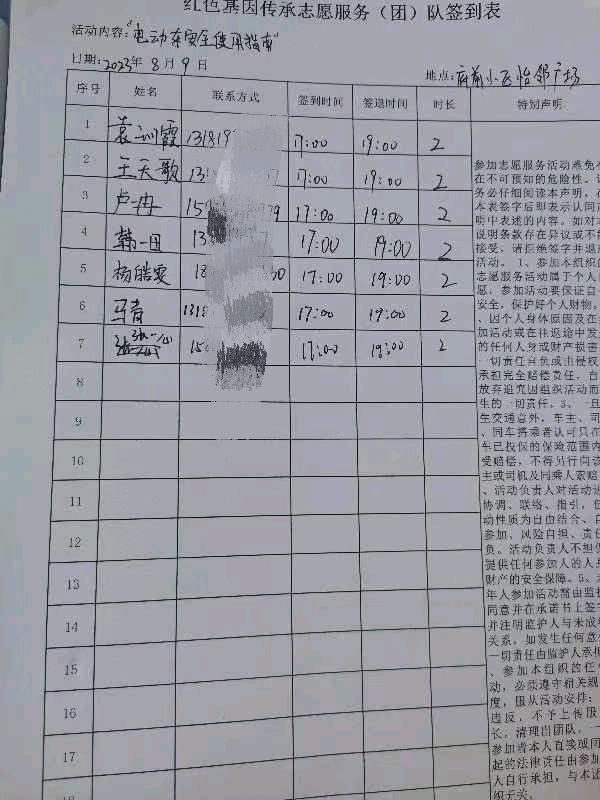 红色基因传承志愿服务（团）队签到表
活动内容："电动车安全使用指南"
日期：2023年8月9日
地点：府前小区怡邻广场
序号 姓名 联系方式 签到时间 签退时间 时长 特别声明
1 袁训霞 13181 17:00 19:00 2
2 王天歌 131 17:00 19:00 2
3 卢冉 15 79 17:00 19:00 2
4 韩一田 13 17:00 19:00 2
5 杨皓雯 18 30 17:00 19:00 2
6 马青 1318 17:00 19:00 2
7 15 17:00 19:00 2
8
9
10
11
12
13
14
15
16
17
18
参加志愿服务活动难免存
在不可预知的危险性。请
务必仔细阅读本声明，在
本表签字后即表示认同声
明中表述的内容。如对本
说明条款存在异议或不能
接受，请拒绝签字并退出
活动。1、参加本组织的
志愿服务活动属于个人自
愿，参加活动要保证自身
安全，保护好个人财物。
、因个人身体原因及在参
加活动或在往返途中发生
的任何人身或财产损害，
一切责任自负或由侵权人
承担完全赔偿责任，自愿
放弃追究因组织活动而产
生的一切责任。3、一旦发
生交通意外，车主、司机
、同车搭乘者认可只在该
车已投保的保险范围内接
受赔偿，不得另行向该车
主或司机及同乘人索赔。
、活动负责人对活动进行
协调、联络、指引，但活
动性质为自由结合、自愿
参加、风险自担、责任自
负。活动负责人不担保或
提供任何参加人的人身、
财产的安全保障。5、未成
年人参加活动需由监护人
同意并在承诺书上签字，
并注明监护人与未成年人
关系，如发生任何意外，
一切责任由监护人承担。
、参加本组织的任何活
动，必须遵守相关规章制
度，服从活动安排；如有
违反，不予上传服务时
长，清理出团队，一切由
参加者本人直接或间接引
起的法律责任由参加者本
人自行承担，与本组
织无关。